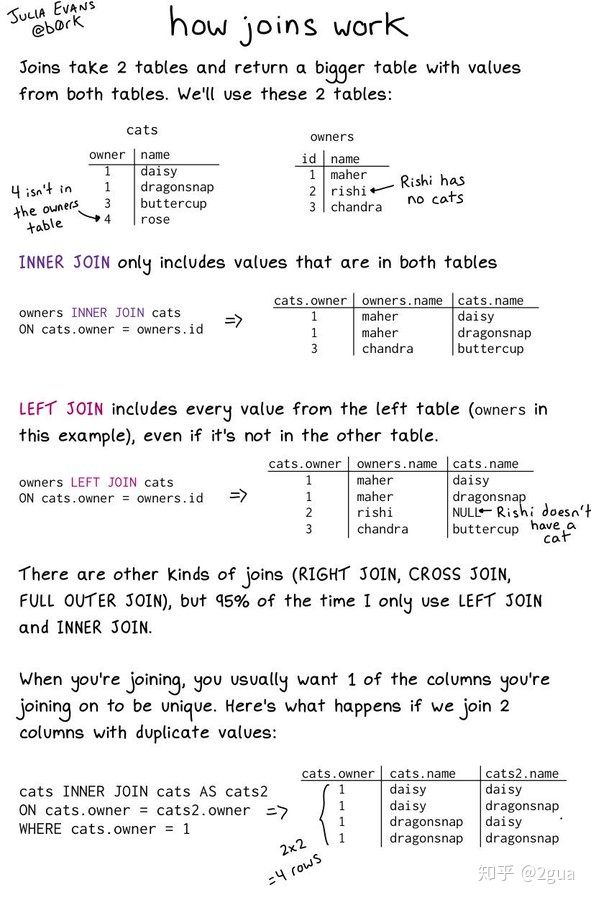 JULIA EVANS
@b0rk
how joins work
Joins take 2 tables and return a bigger table with values
from both tables. We'll use these 2 tables:
cats
owner name
1 daisy
1 dragonsnap
3 buttercup
4 rose
4 isn't in
the owners
table
owners
id name
1 maher
2 rishi
3 chandra
Rishi has
no cats
INNER JOIN only includes values that are in both tables
owners INNER JOIN cats
ON cats.owner = owners.id
=>
cats.owner owners.name cats.name
1 maher daisy
1 maher dragonsnap
3 chandra buttercup
LEFT JOIN includes every value from the left table (owners in
this example), even if it's not in the other table.
owners LEFT JOIN cats
ON cats.owner = owners.id
=>
cats.owner owners.name cats.name
1 maher daisy
1 maher dragonsnap
2 rishi NULL
3 chandra buttercup
Rishi doesn't
have a
cat
There are other kinds of joins (RIGHT JOIN, CROSS JOIN,
FULL OUTER JOIN), but 95% of the time I only use LEFT JOIN
and INNER JOIN.
When you're joining, you usually want 1 of the columns you're
joining on to be unique. Here's what happens if we join 2
columns with duplicate values:
cats INNER JOIN cats AS cats2
ON cats.owner = cats2.owner =>
WHERE cats.owner = 1
cats.owner cats.name cats2.name
1 daisy daisy
1 daisy dragonsnap
1 dragonsnap daisy
1 dragonsnap dragonsnap
2x2
=4 rows
知乎 @2gua